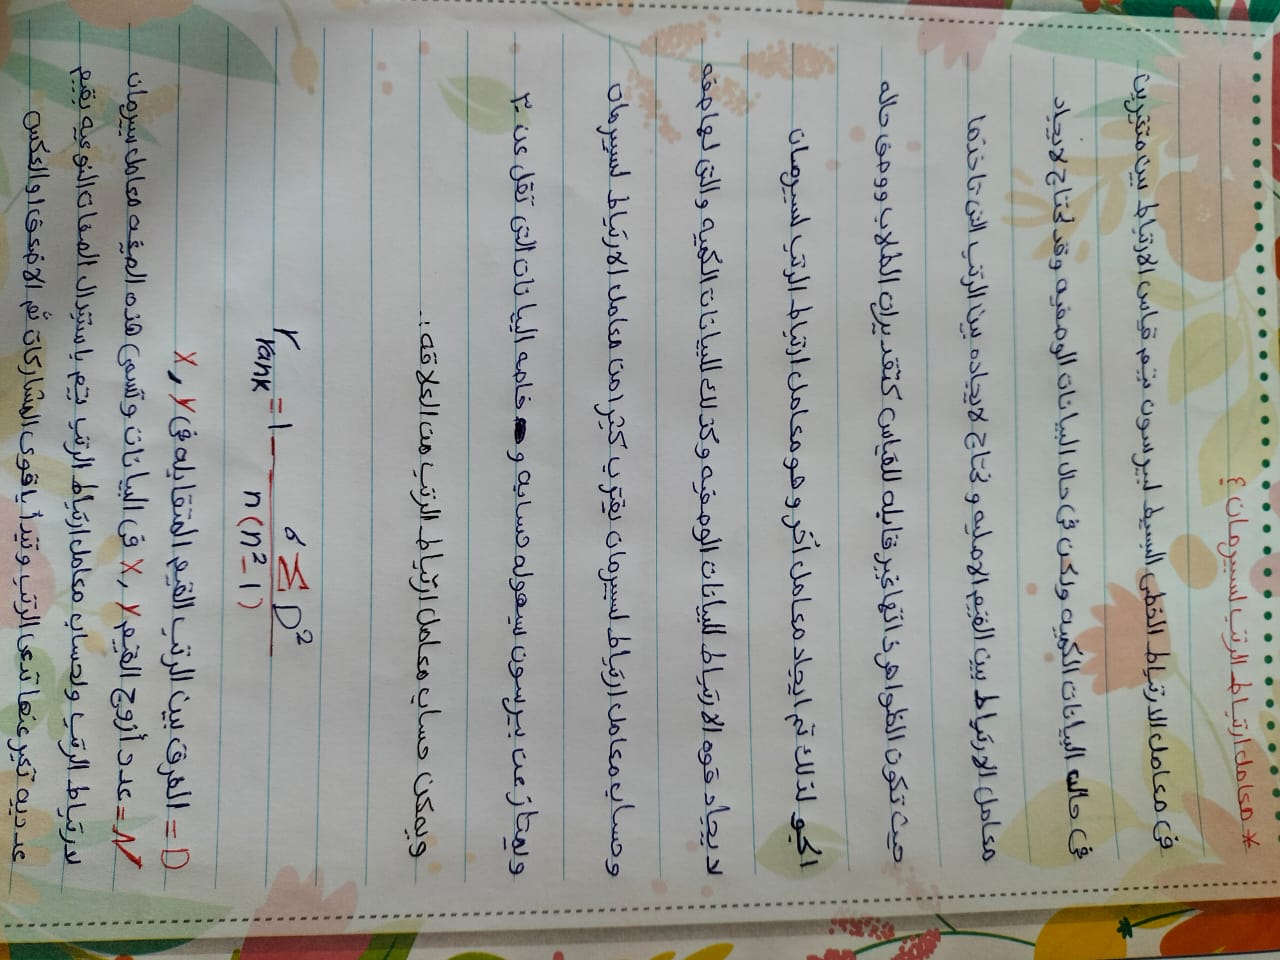 * معامل ارتباط الرتب لسبيرمان ؟
فى معامل الارتباط الخطى البسيط لبيرسون يتم قياس الارتباط بين متغيرين
فى حاله البيانات الكميه ولكن فى حال البيانات الوصفيه وقد نحتاج لايجاد
معامل الارتباط بين القيم الاصليه و نحتاج لايجاده بين الرتب التى تاخذها
حيث تكون الظواهر ذاتها غير قابله للقياس كتقديرات الطلاب ووصف حاله
الجو لذلك تم ايجاد معامل أخر وهو معامل ارتباط الرتب لسبيرمان
لايجاد قوه الارتباط للبيانات الوصفيه وكذلك للبيانات الكميه والتى لها صفه
وحساب معامل ارتباط لسبيرمان يقترب كثيرا من معامل الارتباط لسبيرمان
ويمتاز عن بيرسون سهوله حسابه و خاصه البيانات التى تقل عن ٣٠
ويمكن حساب معامل ارتباط الرتب من العلاقه :.
r rank = 1 - 6 Σ D² / n(n² - 1)
D = الفرق بين الرتب القيم المتقابله فى X , Y
N = عدد أزوج القيم X , Y فى البيانات وتسمى هذه الصيغه معامل سبيرمان
لارتباط الرتب ولحساب معامل ارتباط الرتب يتم باستبدال الصفات النوعيه بقيم
عدديه تعبر عنها تدعى الرتب وتبدأ باقوى المشاركات ثم الاضعف او العكس